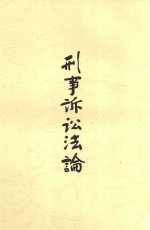 刑事訴訟法論